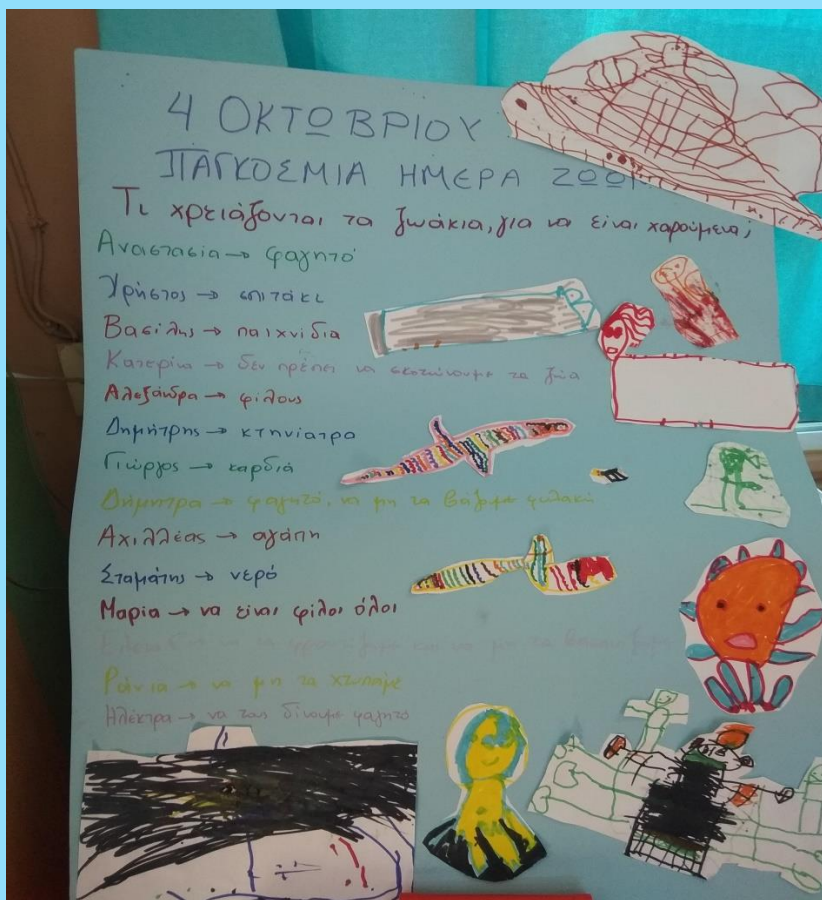 4 ΟΚΤΩΒΡΙΟΥ
ΠΑΓΚΟΣΜΙΑ ΗΜΕΡΑ ΖΩΩΝ
Τι χρειάζονται τα ζωάκια, για να είναι χαρούμενα;
Αναστασία → φαγητό
Χρήστος → σπιτάκι
Βασίλης → παιχνίδια
Κατερίνα → δεν πρέπει να σκοτώνουμε τα ζώα
Αλεξάνδρα → φίλους
Δημήτρης → κτηνίατρο
Γιώργος → καρδιά
Δήμητρα → φαγητό, να μη τα βάζουμε φυλακή
Αχιλλέας → αγάπη
Σταμάτης → νερό
Μαρία → να είναι φίλοι όλοι
→ να τα φροντίζουμε και να μη τα
Ράνια → να μη τα χτυπάμε
Ηλέκτρα → να τους δίνουμε φαγητό